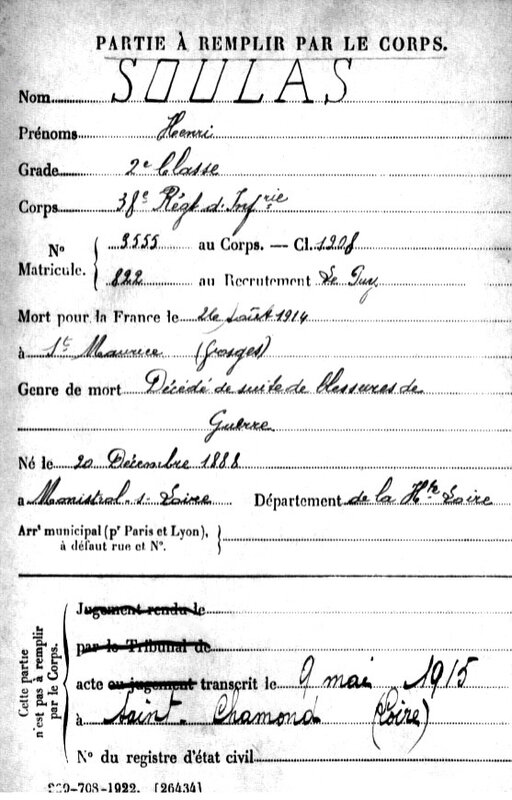 PARTIE À REMPLIR PAR LE CORPS.
Nom SOULAS
Prénoms Henri
Grade 2e Classe
Corps 38e Régt d'Infrie
No Matricule. { 3555 au Corps. — Cl. 1908
822 au Recrutement Le Puy
Mort pour la France le 26 août 1914
à St Maurice (Vosges)
Genre de mort Décédé de suite de blessures de
Guerre
Né le 20 Décembre 1888
à Monistrol-s-Loire Département de la Hte Loire
Arrt municipal (pr Paris et Lyon),
à défaut rue et No.
Cette partie n'est pas à remplir par le Corps.
Jugement rendu le
par le Tribunal de
acte ou jugement transcrit le 9 mai 1915
à Saint-Chamond (Loire)
No du registre d'état civil
-708-1922. [26434]